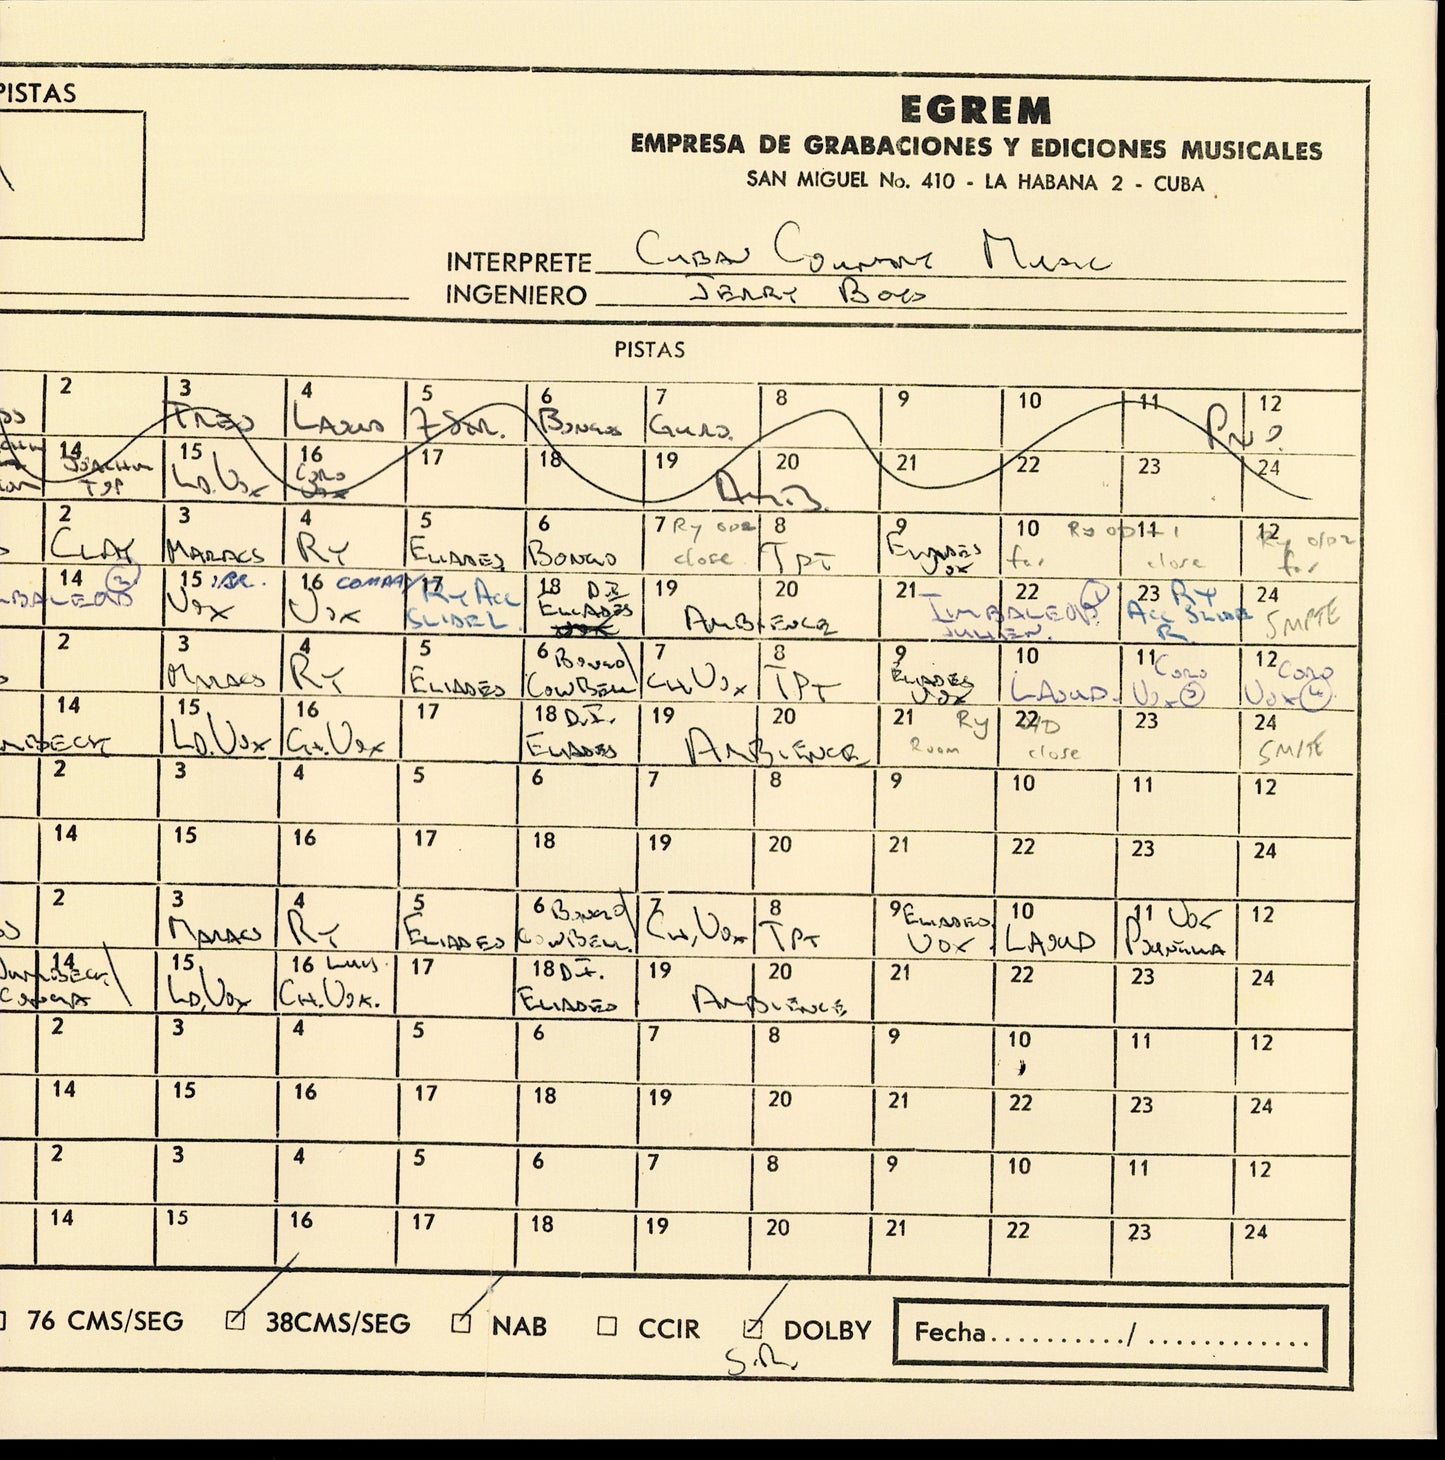 PISTAS
EGREM
EMPRESA DE GRABACIONES Y EDICIONES MUSICALES
SAN MIGUEL No. 410 - LA HABANA 2 - CUBA
INTERPRETE Cuban Country Music
INGENIERO Jerry Boys
PISTAS
2 3 4 5 6 7 8 9 10 11 12
TRES LAUD BONGOS GUIRO. PNO.
14 15 16 17 18 19 20 21 22 23 24
JOACHIM TOP LD. VOX CORO VOX AMB.
2 3 4 5 6 7 8 9 10 11 12
CLAY MARACS RY ELIADES BONGO Ry close TPT ELIADES VOX far Ry opt 1 close Ry far
14 15 16 17 18 19 20 21 22 23 24
TIMBALEON 2 VOX IBR. VOX COMPAY RY ACC SLIDE L D.I. ELIADES AMBIENCE TIMBALEON 1 JULIEN. RY ACC SLIDE R. SMPTE
2 3 4 5 6 7 8 9 10 11 12
MARACS RY ELIADES BONGO\ COWBELL CH. VOX TPT ELIADES VOX LAUD. CORO VOX 3 CORO VOX 4
14 15 16 17 18 19 20 21 22 23 24
LD. VOX CH. VOX D.I. ELIADES AMBIENCE Ry Room O/D close SMPTE
2 3 4 5 6 7 8 9 10 11 12
14 15 16 17 18 19 20 21 22 23 24
2 3 4 5 6 7 8 9 10 11 12
MARACS RY ELIADES BONGO\ COWBELL. CH, VOX TPT ELIADES VOX LAUD VOX PUNTILLA
14 15 16 17 18 19 20 21 22 23 24
DUMBECK\ CONGA LD, VOX LUIS. CH. VOX. D.I. ELIADES AMBIENCE
2 3 4 5 6 7 8 9 10 11 12
14 15 16 17 18 19 20 21 22 23 24
2 3 4 5 6 7 8 9 10 11 12
14 15 16 17 18 19 20 21 22 23 24
76 CMS/SEG 38CMS/SEG NAB CCIR DOLBY Fecha........../ .............
S.R.